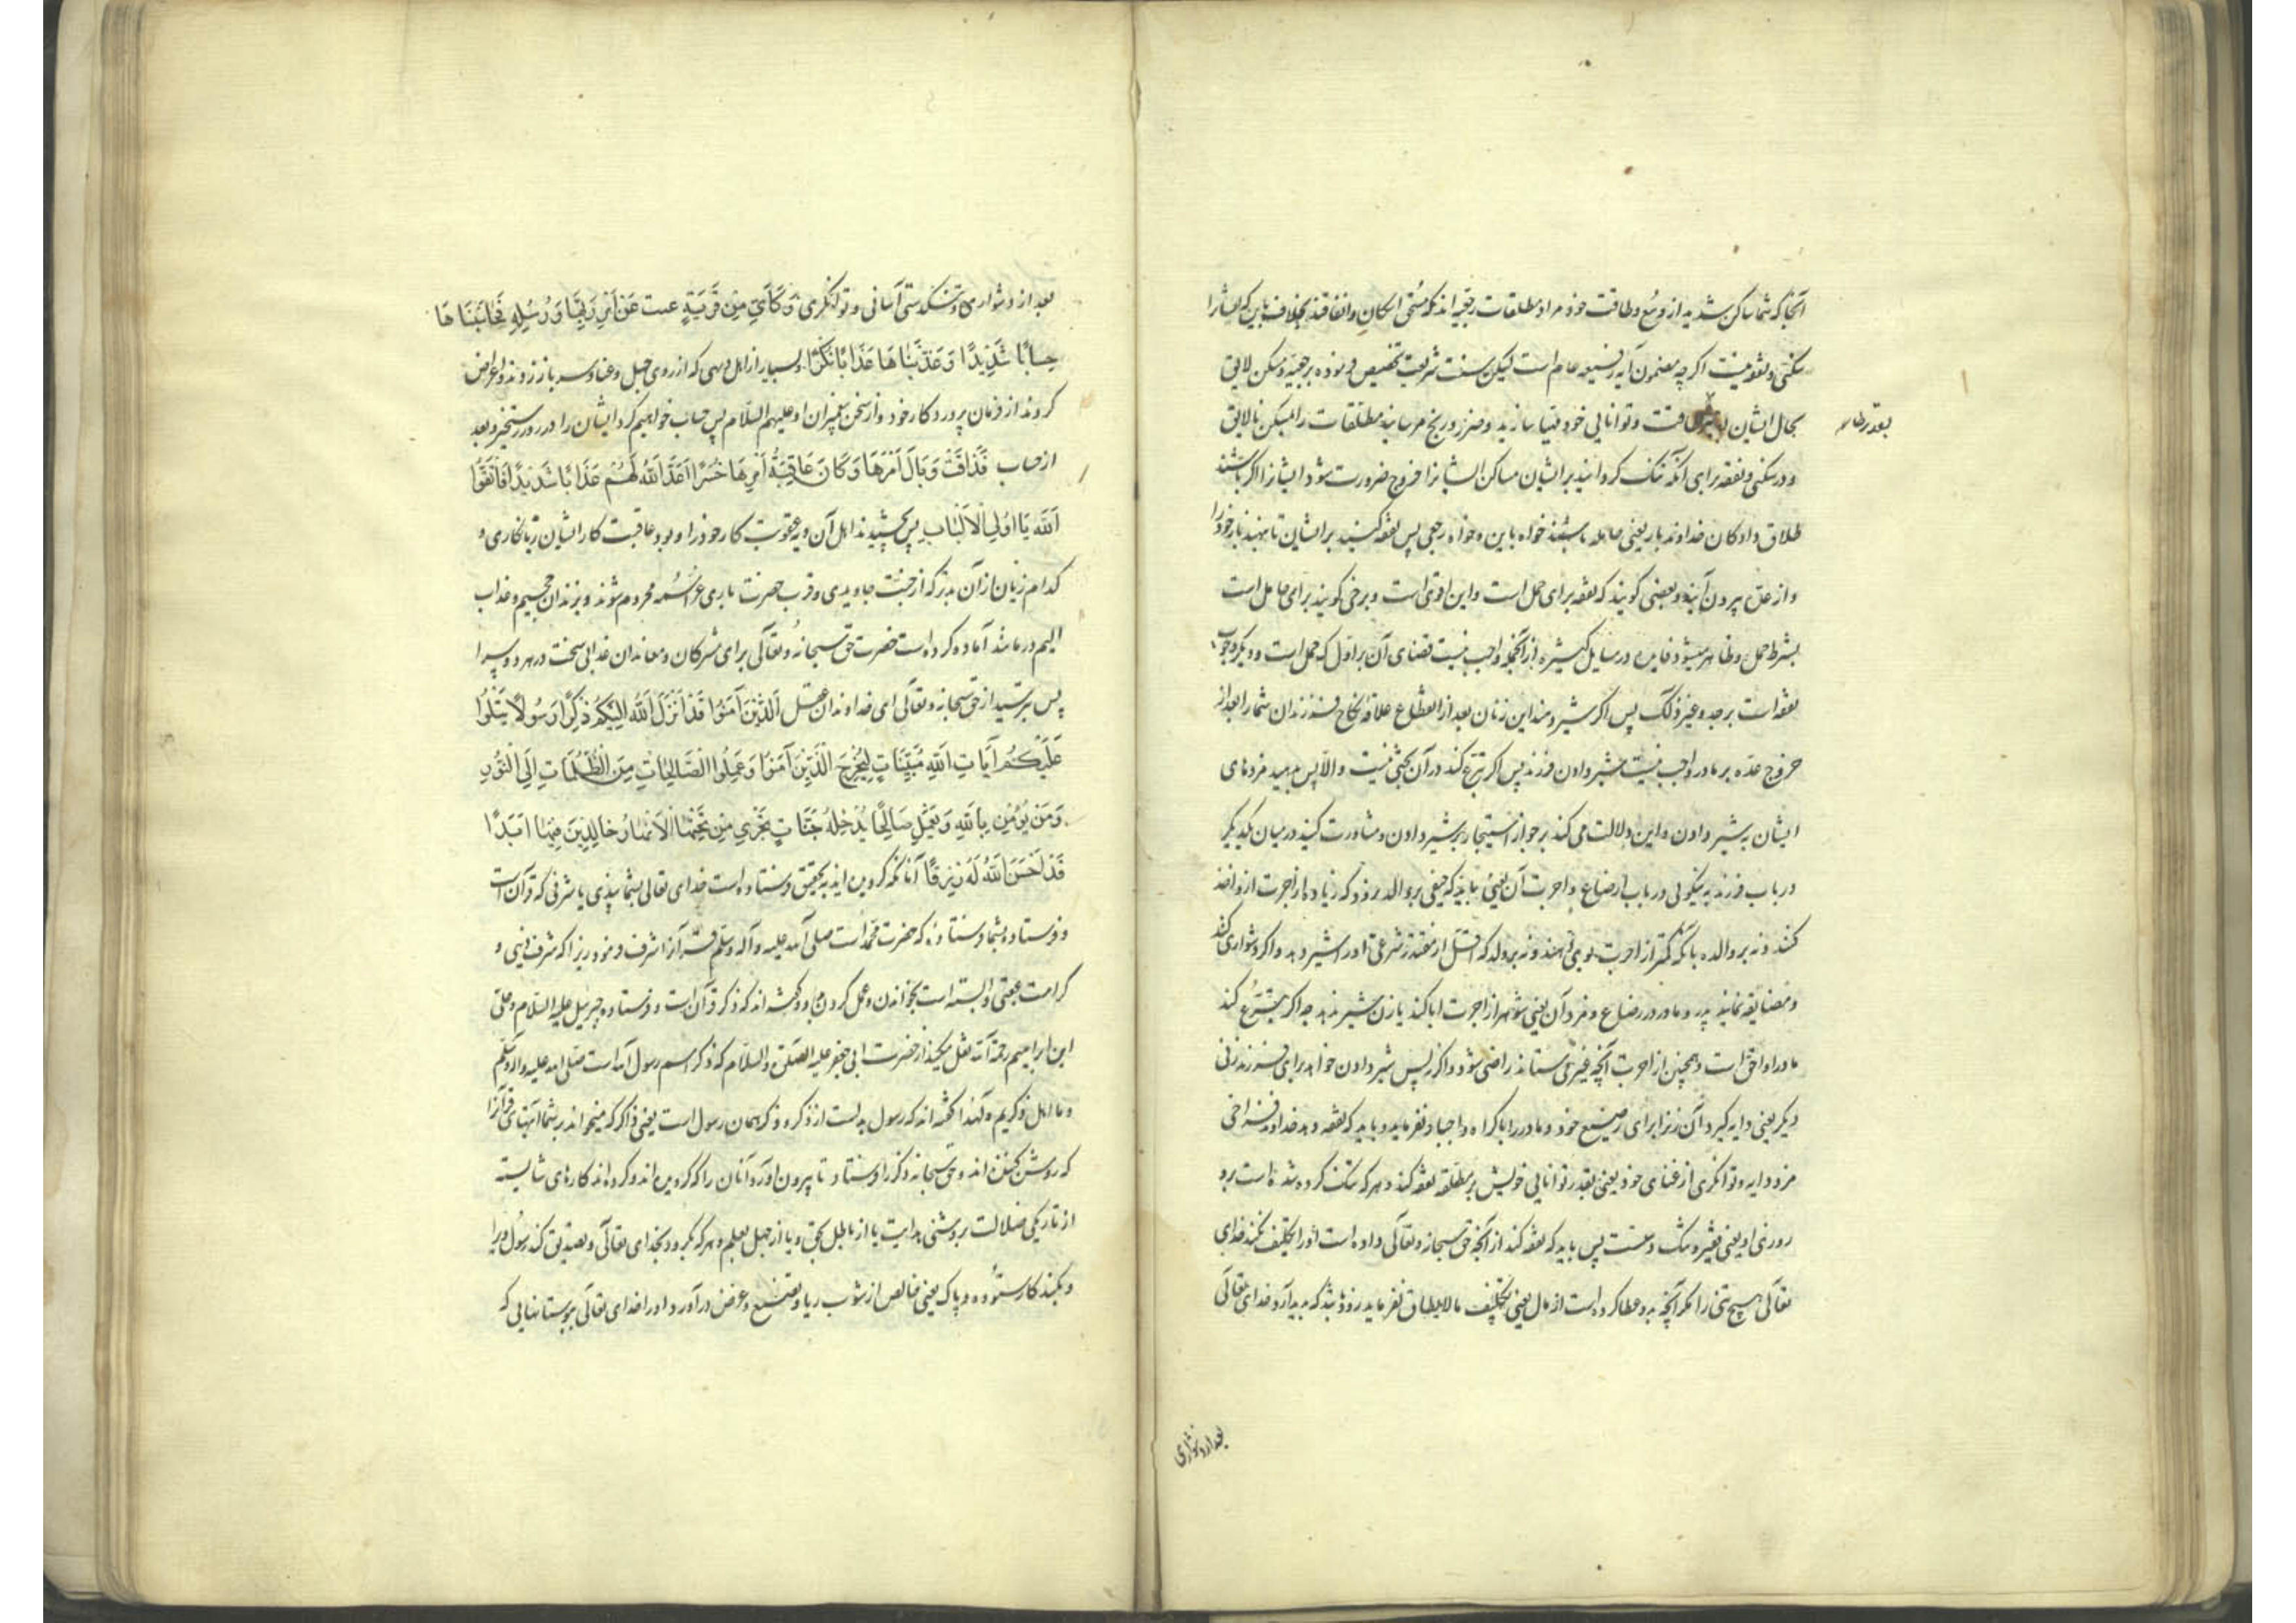 آنجا که شما ساکن شدید از وسع و طاقت خود مراد مطلقات رجعیه اند که مستحق اسکان و انفاقند بخلاف باین که ایشانرا
سکنی و نفقه نیست اگرچه مضمون آیه رفیعه عام است لیکن سنت شریعت تخصیص فرموده برجعیه و مسکن لایق
بحال ایشان طاقت و توانایی خود مهیا سازید و ضرر و رنج مرسانید مطلقات را بمسکن نالایق
بقدر طا
و در سکنی و نفقه برای آنکه تنک کردانید بر ایشان مساکن ایشانرا خروج ضرورت شود ایشانرا اکر باشند
طلاق دادکان خداوند بار یعنی حامله باشند خواه باین و خواه رجعی پس نفقه کنید بر ایشان تا بنهند بار خود را
و از عدت بیرون آیند و بعضی کویند که نفقه برای حمل است و این اقوی است و برخی کویند برای حامل است
بشرط حمل و ظاهر میشود فایده در مسایل کثیره از آنجمله واجب نیست قضای آن بر اول که حمل است و دیکر وجوب
نفقه است بر جد و غیر ذلک پس اکر شیر دهند این زنان بعد از انقطاع علاقه نکاح فرزندان شما را بعد از
خروج عده بر مادر واجب نیست شیر دادن فرزند پس اکر تبرع کند در آن بحثی نیست و الا پس بدهید مزدهای
ایشان به شیر دادن و این دلالت می کند بر جواز استیجار بر شیر دادن و مشاورت کنید در میان یکدیکر
در باب فرزند به نیکویی در باب ارضاع و اجرت آن یعنی باید که حیفی بر والد نرود که زیاده از اجرت ازو اخذ
کنند و نه بر والده بآنکه کمتر از اجرت بوی دهند و نه بر ولد که اقل از مقدر شرعی او را شیر دهد و اکر دشواری کنند
و مضایقه نمایند پدر و مادر در رضاع و مزد آن یعنی شوهر از اجرت ابا کند یا زن شیر ندهد چه اکر تبرع کند
مادر اولی است و همچنین از اجرت آنچه غیر می ستاند راضی شود و اکر نه پس شیر دادن خواهد برای فرزند زنی
دیکر یعنی دایه کیرد آن زن را برای رضیع خود و مادر را باکراه و اجبار نفرماید و باید که نفقه دهد خداوند فراخی
مزد دایه و توانکری از غنای خود یعنی بقدر توانایی خویش بر مطلقه نفقه کند و هر که تنک کرده شده است برو
روزی او یعنی فقیر و تنک دست پس باید که نفقه کند از آنچه حق سبحانه و تعالی داده است او را تکلیف نکند خدای
تعالی هیچ تنی را مکر آنچه بدو عطا کرده است از مال یعنی تکلیف مالایطاق نفرماید زود باشد که پدید آرد خدای تعالی
بعد از دشواری
بعد از دشواری و تنکدستی آسانی و توانکری وَكَأَيِّن مِن قَرْيَةٍ عتت عَن أَمْرِ رَبِّهَا وَرُسُلِهِ فَحَاسَبْنَاهَا
حِسَابًا شَدِيدًا وَعَذَّبْنَاهَا عَذَابًا نُكْرًا و بسیار از اهل دیهی که از روی جهل و عناد سر باز زدند و اعراض
کردند از فرمان پروردکار خود و از سخن پیغمبران او علیهم السلام پس حساب خواهیم کرد ایشان را در روز رستخیز و بعد
از حساب فَذَاقَتْ وَبَالَ أَمْرِهَا وَكَانَ عَاقِبَةُ أَمْرِهَا خُسْرًا أَعَدَّ اللهُ لَهُمْ عَذَابًا شَدِيدًا فَاتَّقُوا
اللهَ يَا أُولِي الْأَلْبَابِ پس بچشیدند اهل آن دیه عقوبت کار خود را و بود عاقبت کار ایشان زیانکاری و
کدام زیان از آن بدتر که از جنت جاویدی و قرب حضرت باری عز اسمه محروم شوند و بزندان جحیم و عذاب
الیم درمانند آماده کرده است حضرت حق سبحانه و تعالی برای مشرکان و معاندان عذابی سخت در هر دو سرا
پس بترسید از حق سبحانه و تعالی ای خداوندان عقل الَّذِينَ آمَنُوا قَدْ أَنْزَلَ اللهُ إِلَيْكُمْ ذِكْرًا رَسُولًا يَتْلُوا
عَلَيْكُمْ آيَاتِ اللهِ مُبَيِّنَاتٍ لِيُخْرِجَ الَّذِينَ آمَنُوا وَعَمِلُوا الصَّالِحَاتِ مِنَ الظُّلُمَاتِ إِلَى النُّورِ
وَمَنْ يُؤْمِنْ بِاللهِ وَيَعْمَلْ صَالِحًا يُدْخِلْهُ جَنَّاتٍ تَجْرِي مِنْ تَحْتِهَا الْأَنْهَارُ خَالِدِينَ فِيهَا أَبَدًا
قَدْ أَحْسَنَ اللهُ لَهُ رِزْقًا آنانکه کرویده اند به تحقیق فرستاده است خدای تعالی بشما پندی یا شرفی که قرآن است
و فرستاد بشما فرستاده که حضرت محمد است صلی الله علیه و آله و سلم قرآن را شرف فرمود زیرا که شرف دنیی و
کرامت عقبی وابسته است بخواندن و عمل کردن بدو و کفته اند که ذکر قرآن است و فرستاده جبریل علیه السلام و علی
ابن ابراهیم رحمة الله نقل میکند از حضرت ابی جعفر علیه الصلوة والسلام که ذکر اسم رسول الله است صلی الله علیه و آله و سلم
و ما اهل ذکریم و لهذا کفته اند که رسول بدلست از ذکر و ذکر همان رسول است یعنی ذاکر که میخواند بر شما آیتهای قرآن را
که روشن کننده اند و حق سبحانه ذکر را فرستاد تا بیرون آورد آنان را که کرویده اند و کرده اند کارهای شایسته
از تاریکی ضلالت بروشنی هدایت یا از باطل بحق و یا از جهل بعلم و هر که بکرود بخدای تعالی و تصدیق کند رسول ویرا
و بکند کار ستوده و پاک یعنی خالص از شوب ریا و تصنیع و غرض درآورد او را خدای تعالی ببوستانهایی که